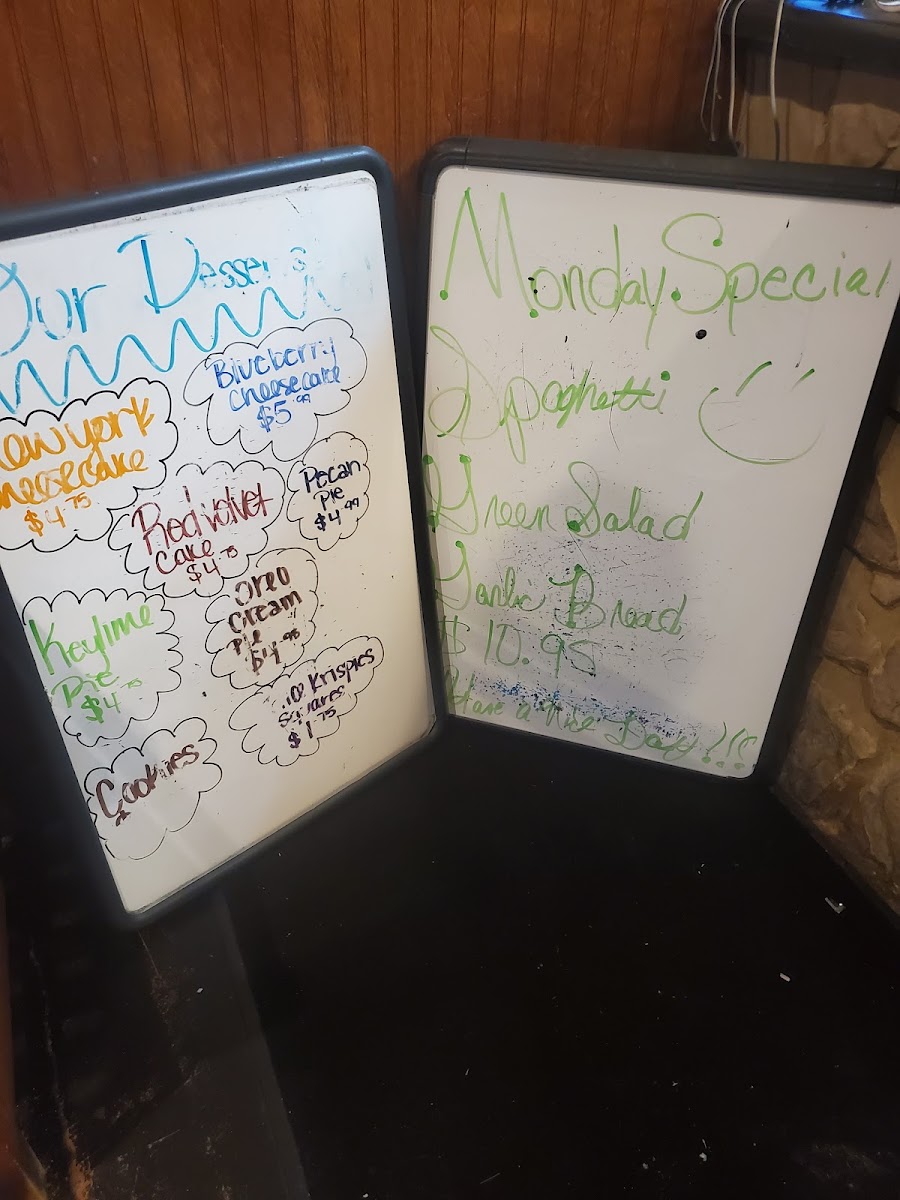 Our Desser s
New york
cheesecake
$4.75
Blueberry
cheesecake
$5.99
Red velvet
Cake
$4.75
Pecan
Pie
$4.99
Keylime
Pie
$4.75
Oreo
Cream
Pie
$4.95
Krispies
Squares
$1.75
Cookies
Monday Special
Spaghetti
Green Salad
Garlic Bread
$10.95
Have a Nice Day!!!